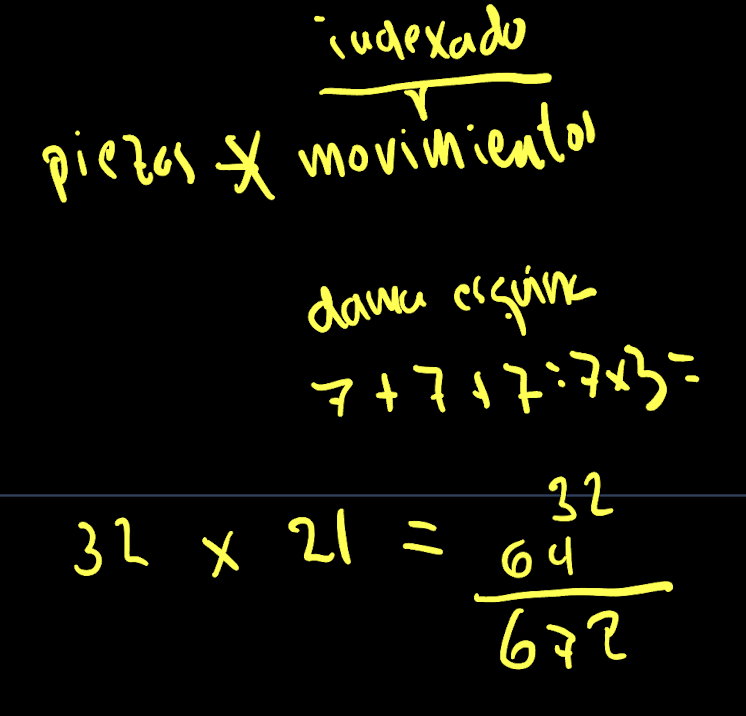 indexado
piezas x movimientos
dama esquina
7 + 7 + 7 = 7x3 =
32
32 x 21 = 64
672